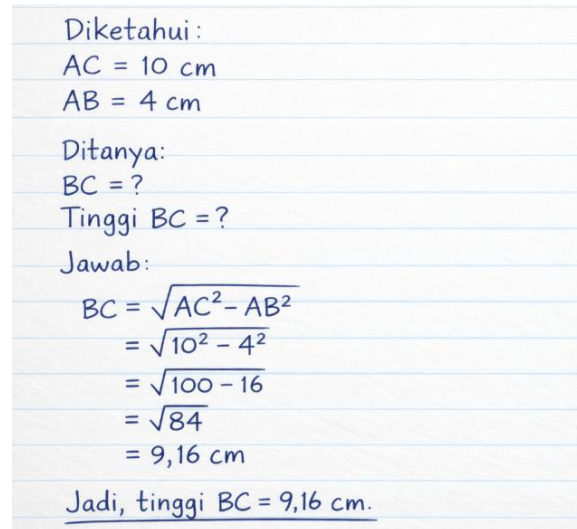 Diketahui:
AC = 10 cm
AB = 4 cm
Ditanya:
BC = ?
Tinggi BC = ?
Jawab:
BC = √AC² – AB²
= √10² – 4²
= √100 – 16
= √84
= 9,16 cm
Jadi, tinggi BC = 9,16 cm.